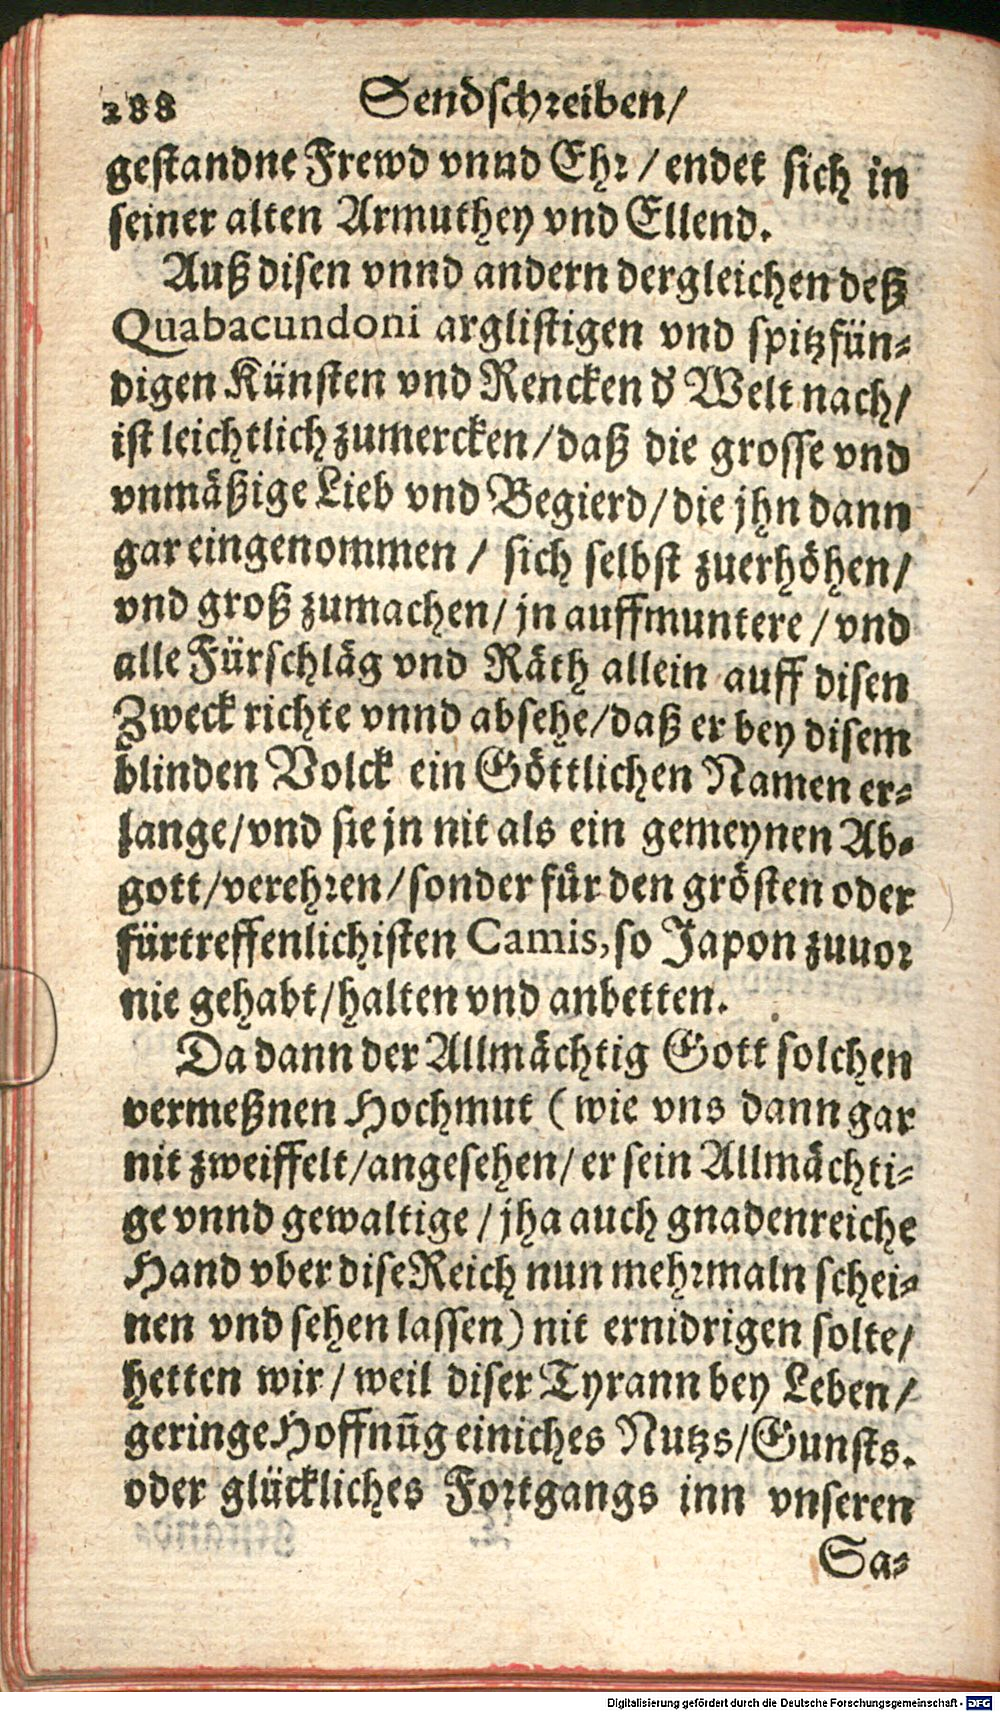 288 Sendschreiben/
gestandne Frewd vnnd Ehr / endet sich in
seiner alten Armuthey vnd Ellend.
Auß disen vnnd andern dergleichen deß
Quabacundoni arglistigen vnd spitzfün-
digen Künsten vnd Rencken d' Welt nach/
ist leichtlich zumercken/daß die grosse vnd
vnmäßige Lieb vnd Begierd/die jhn dann
gar eingenommen / sich selbst zuerhöhen/
vnd groß zumachen/jn auffmuntere / vnd
alle Fürschläg vnd Räth allein auff disen
Zweck richte vnnd absehe/daß er bey disem
blinden Volck ein Göttlichen Namen er-
lange/vnd sie jn nit als ein gemeynen Ab-
gott/verehren/sonder für den grösten oder
fürtreffenlichisten Camis, so Japon zuuor
nie gehabt/halten vnd anbetten.
Da dann der Allmächtig Gott solchen
vermeßnen Hochmut (wie vns dann gar
nit zweiffelt/angesehen/er sein Allmächti-
ge vnnd gewaltige / jha auch gnadenreiche
Hand vber dise Reich nun mehrmaln schei-
nen vnd sehen lassen) nit ernidrigen solte/
hetten wir / weil diser Tyrann bey Leben/
geringe Hoffnūg einiches Nutzs/Gunsts.
oder glückliches Fortgangs inn vnseren
Sa-
Digitalisierung gefördert durch die Deutsche Forschungsgemeinschaft - DFG